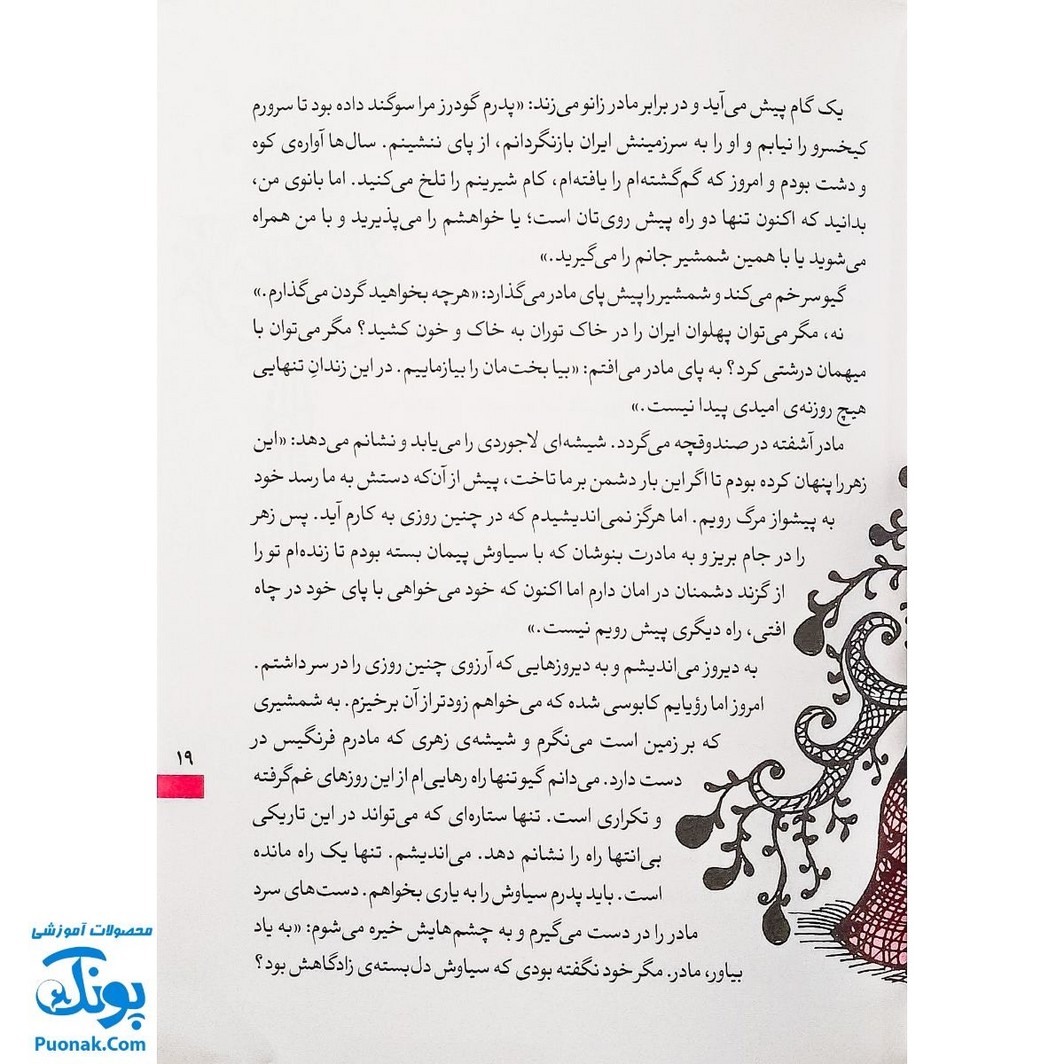 یک گام پیش می‌آید و در برابر مادر زانو می‌زند: «پدرم گودرز مرا سوگند داده بود تا سرورم
کیخسرو را نیابم و او را به سرزمینش ایران بازنگردانم، از پای ننشینم. سال‌ها آواره‌ی کوه
و دشت بودم و امروز که گم‌گشته‌ام را یافته‌ام، کام شیرینم را تلخ می‌کنید. اما بانوی من،
بدانید که اکنون تنها دو راه پیش روی‌تان است؛ یا خواهشم را می‌پذیرید و با من همراه
می‌شوید یا با همین شمشیر جانم را می‌گیرید.»
گیو سر خم می‌کند و شمشیر را پیش پای مادر می‌گذارد: «هرچه بخواهید گردن می‌گذارم.»
نه، مگر می‌توان پهلوان ایران را در خاک توران به خاک و خون کشید؟ مگر می‌توان با
میهمان درشتی کرد؟ به پای مادر می‌افتم: «بیا بخت‌مان را بیازماییم. در این زندانِ تنهایی
هیچ روزنه‌ی امیدی پیدا نیست.»
مادر آشفته در صندوقچه می‌گردد. شیشه‌ای لاجوردی را می‌یابد و نشانم می‌دهد: «این
زهر را پنهان کرده بودم تا اگر این بار دشمن بر ما تاخت، پیش از آن‌که دستش به ما رسد خود
به پیشواز مرگ رویم. اما هرگز نمی‌اندیشیدم که در چنین روزی به کارم آید. پس زهر
را در جام بریز و به مادرت بنوشان که با سیاوش پیمان بسته بودم تا زنده‌ام تو را
از گزند دشمنان در امان دارم اما اکنون که خود می‌خواهی با پای خود در چاه
افتی، راه دیگری پیش رویم نیست.»
به دیروز می‌اندیشم و به دیروزهایی که آرزوی چنین روزی را در سر داشتم.
امروز اما رؤیایم کابوسی شده که می‌خواهم زودتر از آن برخیزم. به شمشیری
که بر زمین است می‌نگرم و شیشه‌ی زهری که مادرم فرنگیس در
دست دارد. می‌دانم گیو تنها راه رهایی‌ام از این روزهای غم‌گرفته
و تکراری است. تنها ستاره‌ای که می‌تواند در این تاریکی
بی‌انتها راه را نشانم دهد. می‌اندیشم. تنها یک راه مانده
است. باید پدرم سیاوش را به یاری بخواهم. دست‌های سرد
مادر را در دست می‌گیرم و به چشم‌هایش خیره می‌شوم: «به یاد
بیاور، مادر. مگر خود نگفته بودی که سیاوش دل‌بسته‌ی زادگاهش بود؟
۱۹
محصولات آموزشی
پونک
Puonak.Com